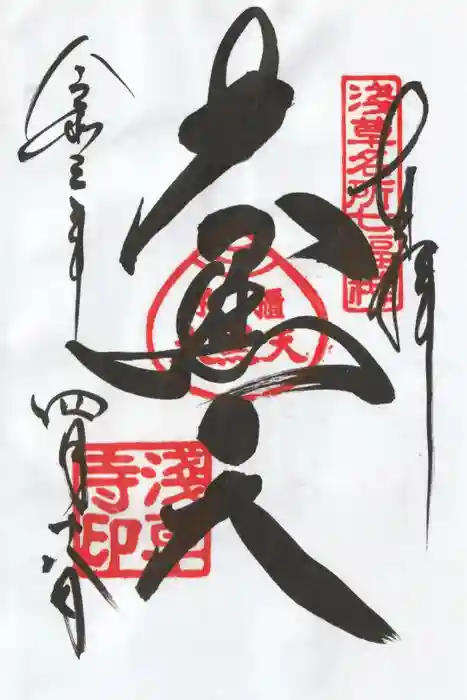 浅草名所七福神
奉拝
大黒天
浅草寺印
令和三年
四月十八日